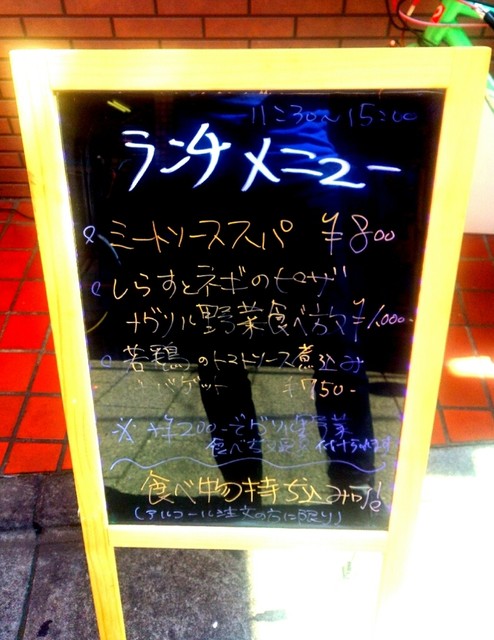 11:30～15:00
ランチメニュー
ミートソーススパ ¥800
しらすとネギのピザ
グリル野菜食べ放 ¥1,000-
若鶏のトマトソース煮込み
バゲット ¥750-
※ +¥200-でグリル野菜
食べ放題 付けられます
食べ物持ち込み可!
(アルコール注文の方に限り)